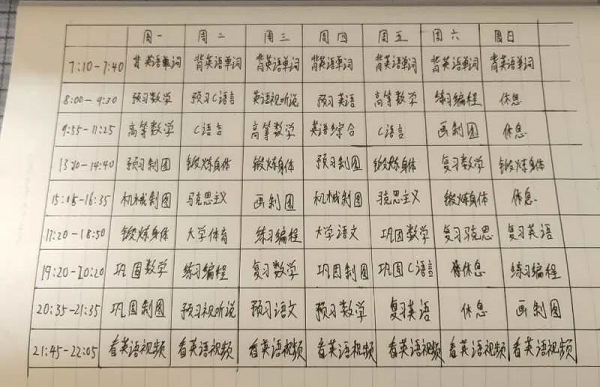 周一 周二 周三 周四 周五 周六 周日
7:10-7:40 背英语单词 背英语单词 背英语单词 背英语单词 背英语单词 背英语单词 背英语单词
8:00-9:30 预习数学 预习C语言 英语视听说 预习英语 高等数学 练习编程 休息
9:55-11:25 高等数学 C语言 高等数学 英语综合 C语言 画制图 休息
13:20-14:40 预习制图 锻炼身体 锻炼身体 预习制图 锻炼身体 复习数学 锻炼身体
15:05-16:35 机械制图 马克思主义 画制图 机械制图 马克思主义 锻炼身体 休息
17:20-18:50 锻炼身体 大学体育 练习编程 大学语文 巩固数学 复习马克思 复习英语
19:20-20:20 巩固数学 练习编程 复习数学 巩固制图 巩固C语言 休息 练习编程
20:35-21:35 巩固制图 预习视听说 预习语文 预习数学 复习英语 休息 画制图
21:45-22:05 看英语视频 看英语视频 看英语视频 看英语视频 看英语视频 看英语视频 看英语视频